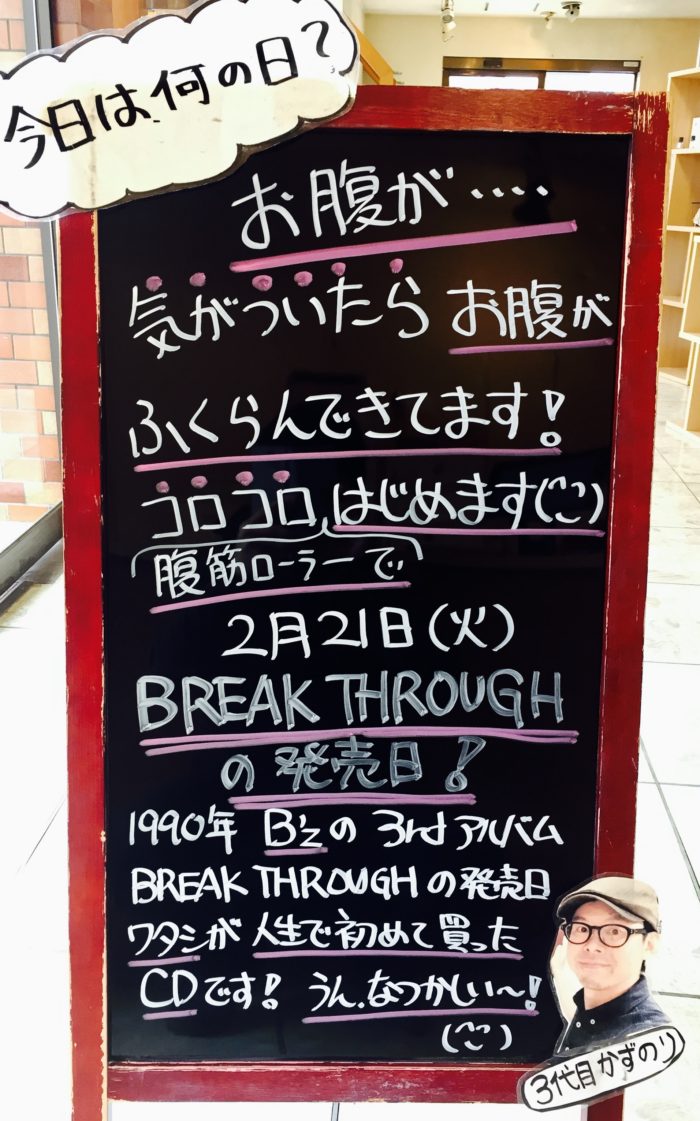 今日は、何の日？
お腹が‥‥
気がついたら お腹が
ふくらんできてます！
コロコロ はじめます(^-^)
腹筋ローラーで
2月21日（火）
BREAK THROUGH
の発売日！
1990年 B'zの 3rdアルバム
BREAK THROUGHの発売日
ワタシが 人生で初めて買った
CDです！ うん、なつかしい〜！
(^-^)
3代目 かずのり